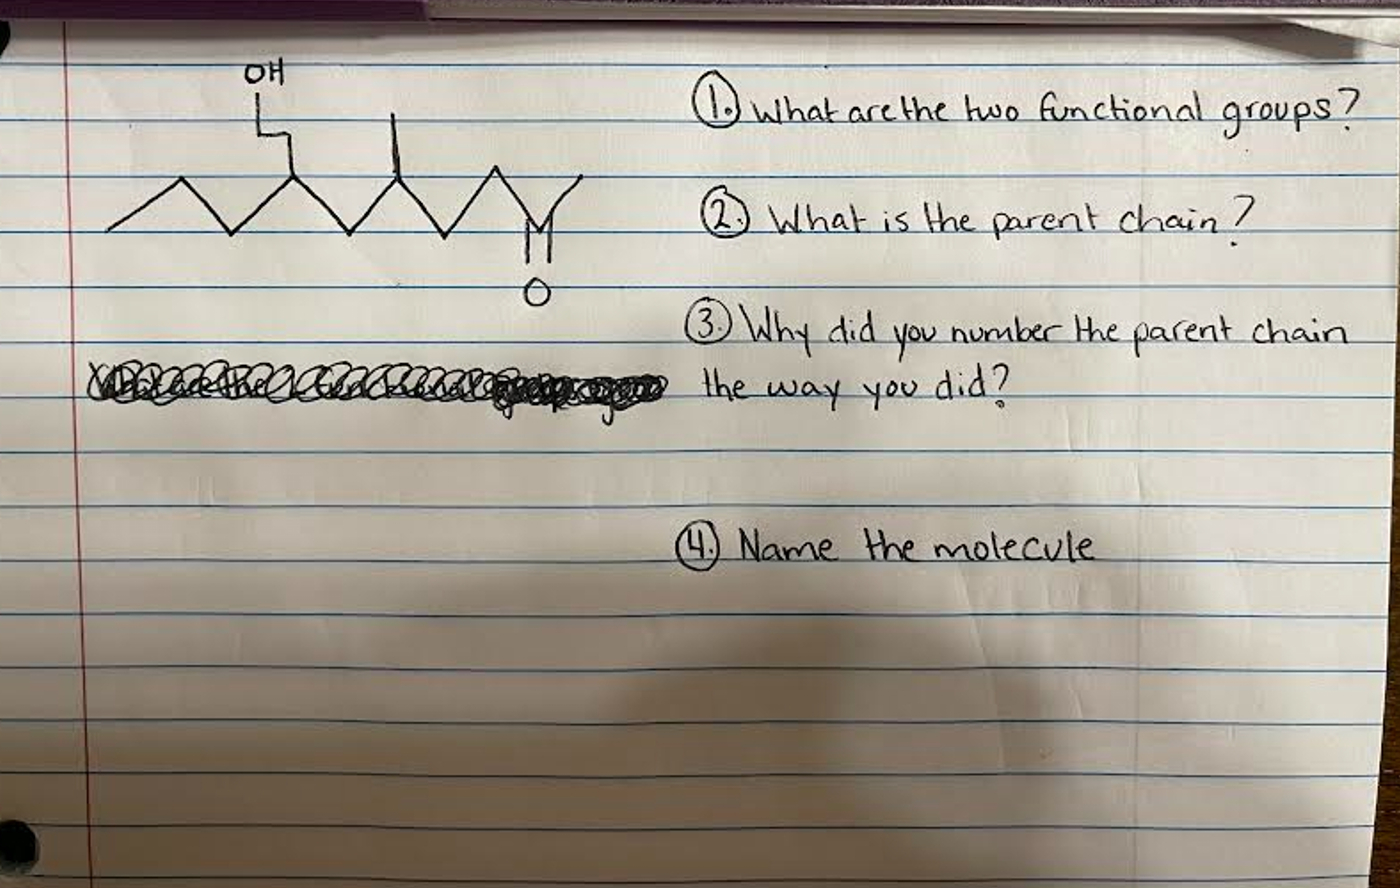 OH
O
1. What are the two functional groups?
2. What is the parent chain?
3. Why did you number the parent chain
the way you did?
4. Name the molecule